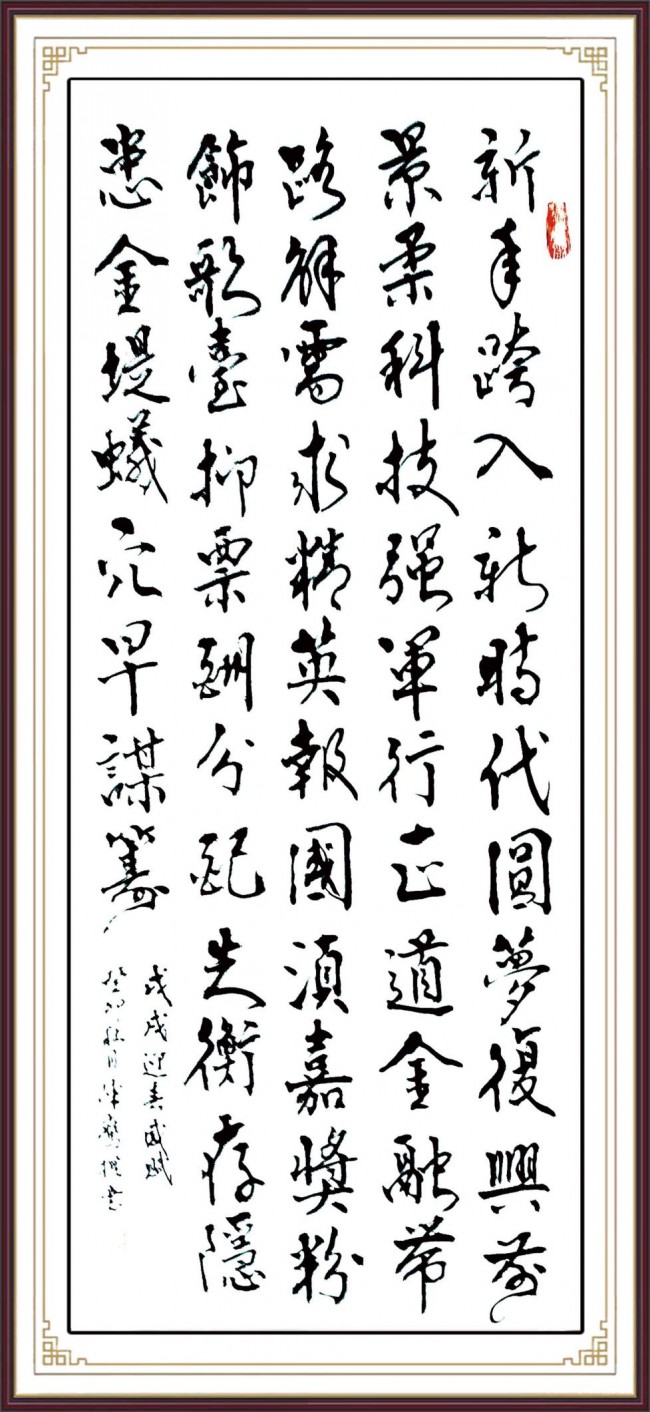 新年跨入新時代圓夢復興前
景柔科技强軍行正道金融帶
路解需求精英報國湏嘉獎粉
飾歌臺抑票酬分配失衡存隱
患金堤蟻穴早謀籌
戊戌迎春感賦
癸卯秋月